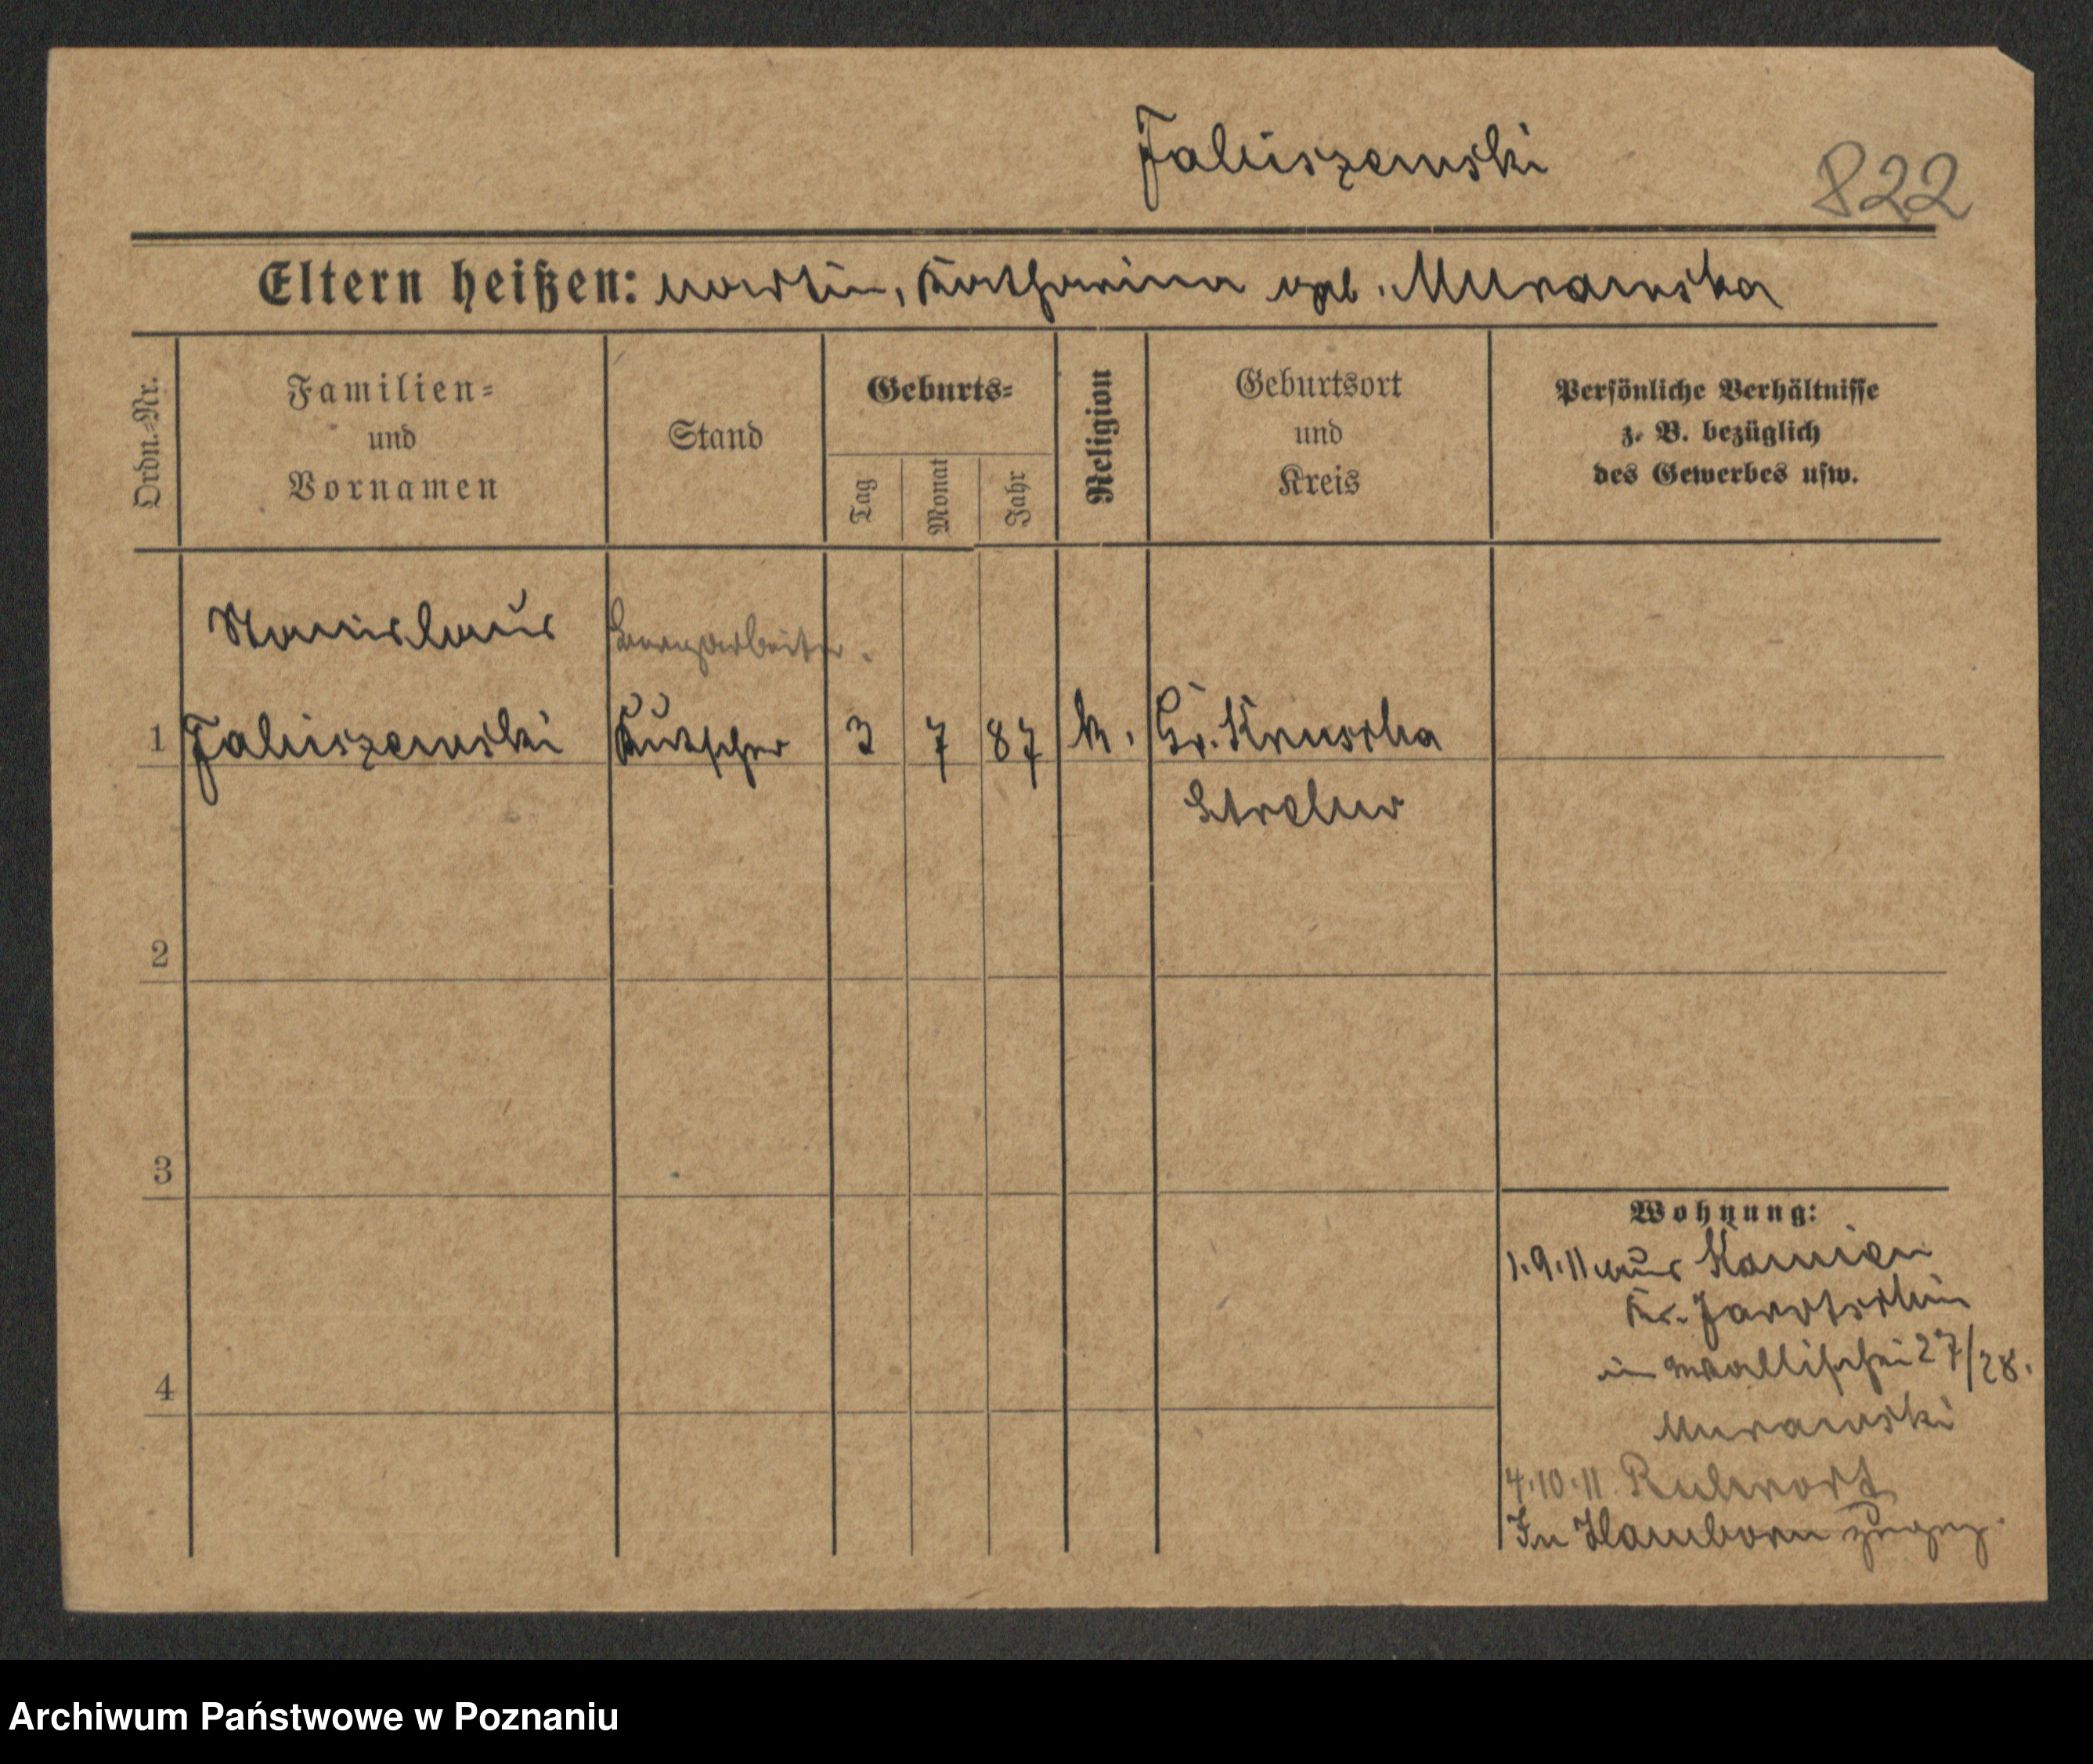 Jakuszewski
822
Eltern heißen: Martin, Katharina geb. Murawska
Ordn.-Nr.
Familien- und Vornamen
Stand
Geburts-
Tag
Monat
Jahr
Religion
Geburtsort und Kreis
Persönliche Verhältnisse z. B. bezüglich des Gewerbes usw.
Stanislaus
1 Jakuszewski Kutscher 3 7 87 k. Gr. Kruscha
Strelno
2
3
4
Wohnung:
1.9.11 aus Kamien
Kr. Jarotschin
in Wallischei 27/28.
Murawski
4.10.11 Ruhrort
In Hamborn zugez.
Archiwum Państwowe w Poznaniu